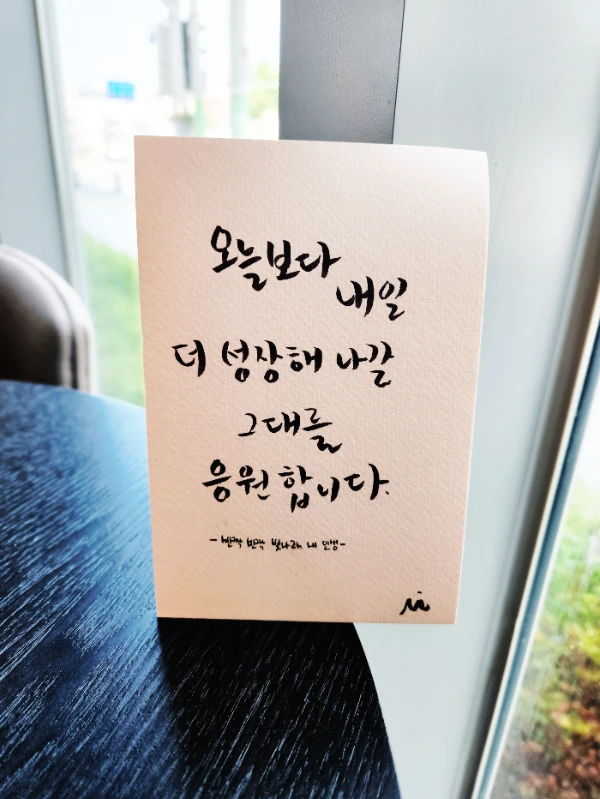 오늘보다
내일
더 성장해 나갈
그대를
응원합니다.
-반짝 반짝 빛나라 내 인생-